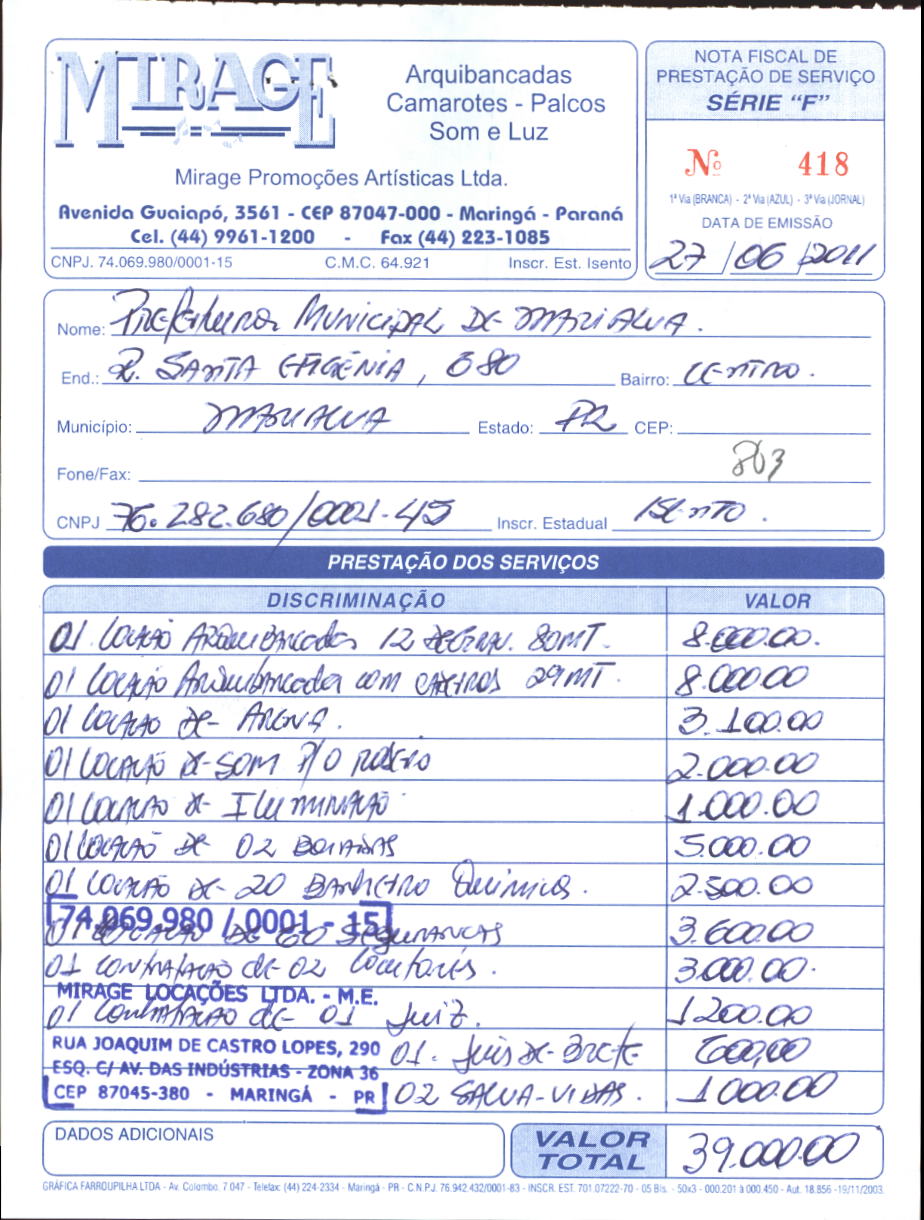 MIRAGE
Arquibancadas
Camarotes - Palcos
Som e Luz
Mirage Promoções Artísticas Ltda.
Avenida Guaiapó, 3561 - CEP 87047-000 - Maringá - Paraná
Cel. (44) 9961-1200 - Fax (44) 223-1085
CNPJ. 74.069.980/0001-15 C.M.C. 64.921 Inscr. Est. Isento
NOTA FISCAL DE
PRESTAÇÃO DE SERVIÇO
SÉRIE "F"
Nº 418
1ª Via (BRANCA) - 2ª Via (AZUL) - 3ª Via (JORNAL)
DATA DE EMISSÃO
27/06/2011
Nome: Prefeitura Municipal de Marialva.
End.: R. Santa Efigênia, 680 Bairro: Centro.
Município: Marialva Estado: PR CEP:
863
Fone/Fax:
CNPJ 76.282.680/0001-45 Inscr. Estadual Isento.
PRESTAÇÃO DOS SERVIÇOS
DISCRIMINAÇÃO VALOR
01 Locação Arquibancadas 12 Degraus. 80MT. 8.000.00.
01 Locação Arquibancada com 29MT. 8.000.00
01 Locação de Arena. 3.100.00
01 Locação de Som P/O Rodeio 2.000.00
01 Locação de Iluminação 1.000.00
01 Locação de 02 Boiadas 5.000.00
01 Locação de 20 Banheiro Químicos. 2.500.00
74.069.980/0001-15
01 Locação de 60 Seguranças 3.600.00
01 Contratação de 02 Locutores. 3.000.00.
MIRAGE LOCAÇÕES LTDA. - M.E.
01 Contratação de 01 Juiz. 1.200.00
RUA JOAQUIM DE CASTRO LOPES, 290 01. Juis de Brete 600,00
ESQ. C/ AV. DAS INDÚSTRIAS - ZONA 36
CEP 87045-380 - MARINGÁ - PR 02 Salva-Vidas. 1.000.00
DADOS ADICIONAIS
VALOR TOTAL 39.000.00
GRÁFICA FARROUPILHA LTDA - Av. Colombo, 7.047 - Telefax: (44) 224-2334 - Maringá - PR - C.N.P.J. 76.942.432/0001-83 - INSCR. EST. 701.07222-70 - 05 Bls. - 50x3 - 000.201 à 000.450 - Aut. 18.856 -19/11/2003.